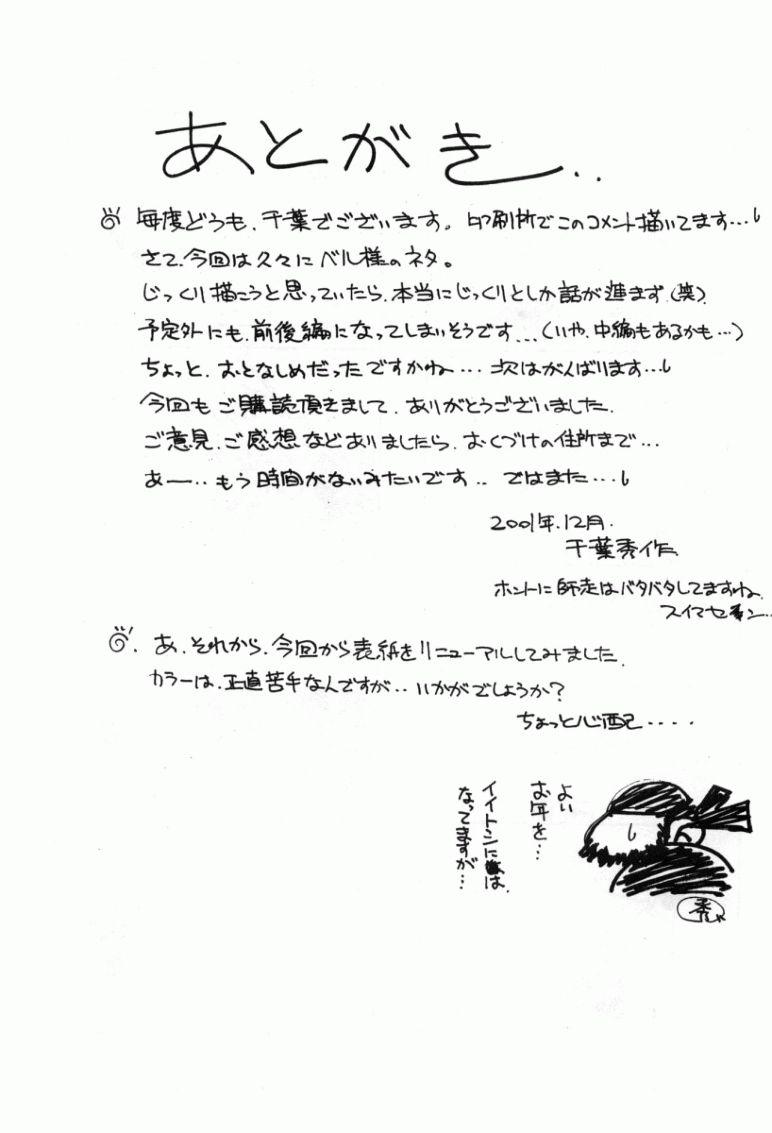 あとがき..
毎度どうも、千葉でございます。印刷所でこのコメント描いてます…
さて、今回は久々にベル様のネタ。
じっくり描こうと思っていたら、本当にじっくりとしか話が進まず(笑)。
予定外にも、前後編になってしまいそうです…(いや、中編もあるかも…)
ちょっと、おとなしめだったですかね…次はがんばります…
今回もご購読頂きまして、ありがとうございました。
ご意見、ご感想などありましたら、おくづけの住所まで…
あー…もう時間がないみたいです.. ではまた…
2001年.12月.
千葉秀作
ホントに師走はバタバタしてますね。
スイマセン…
あ、それから、今回から表紙をリニューアルしてみました。
カラーは、正直苦手なんですが.. いかがでしょうか?
ちょっと心配....
よい
お年を…
イイトシには
なってますが…
秀